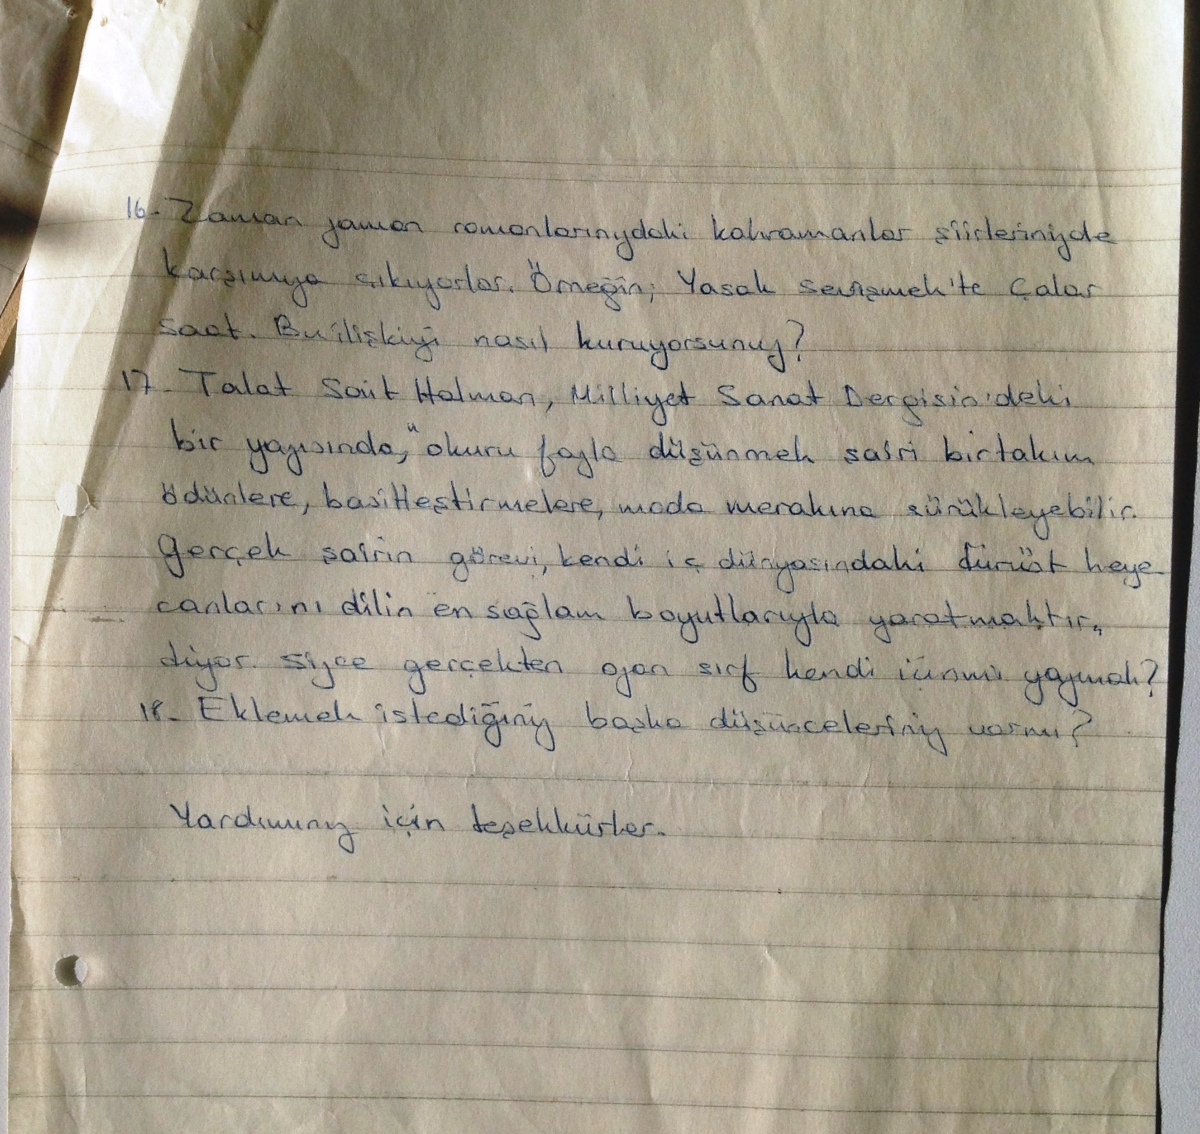 16- Zaman zaman romanlarınızdaki kahramanlar şiirlerinizde
karşımıza çıkıyorlar. Örneğin; Yasak Sevişmek'te Çalar
saat. Bu ilişkiyi nasıl kuruyorsunuz?
17- Talat Sait Halman, Milliyet Sanat Dergisin'deki
bir yazısında, "okuru fazla düşünmek şairi birtakım
ödünlere, basitleştirmelere, moda merakına sürükleyebilir.
Gerçek şairin görevi, kendi iç dünyasındaki dürüst heye-
canlarını dilin en sağlam boyutlarıyla yaratmaktır„
diyor. Sizce gerçekten ozan sırf kendi için mi yazmalı?
18- Eklemek istediğiniz başka düşünceleriniz varmı?
Yardımınız için teşekkürler.